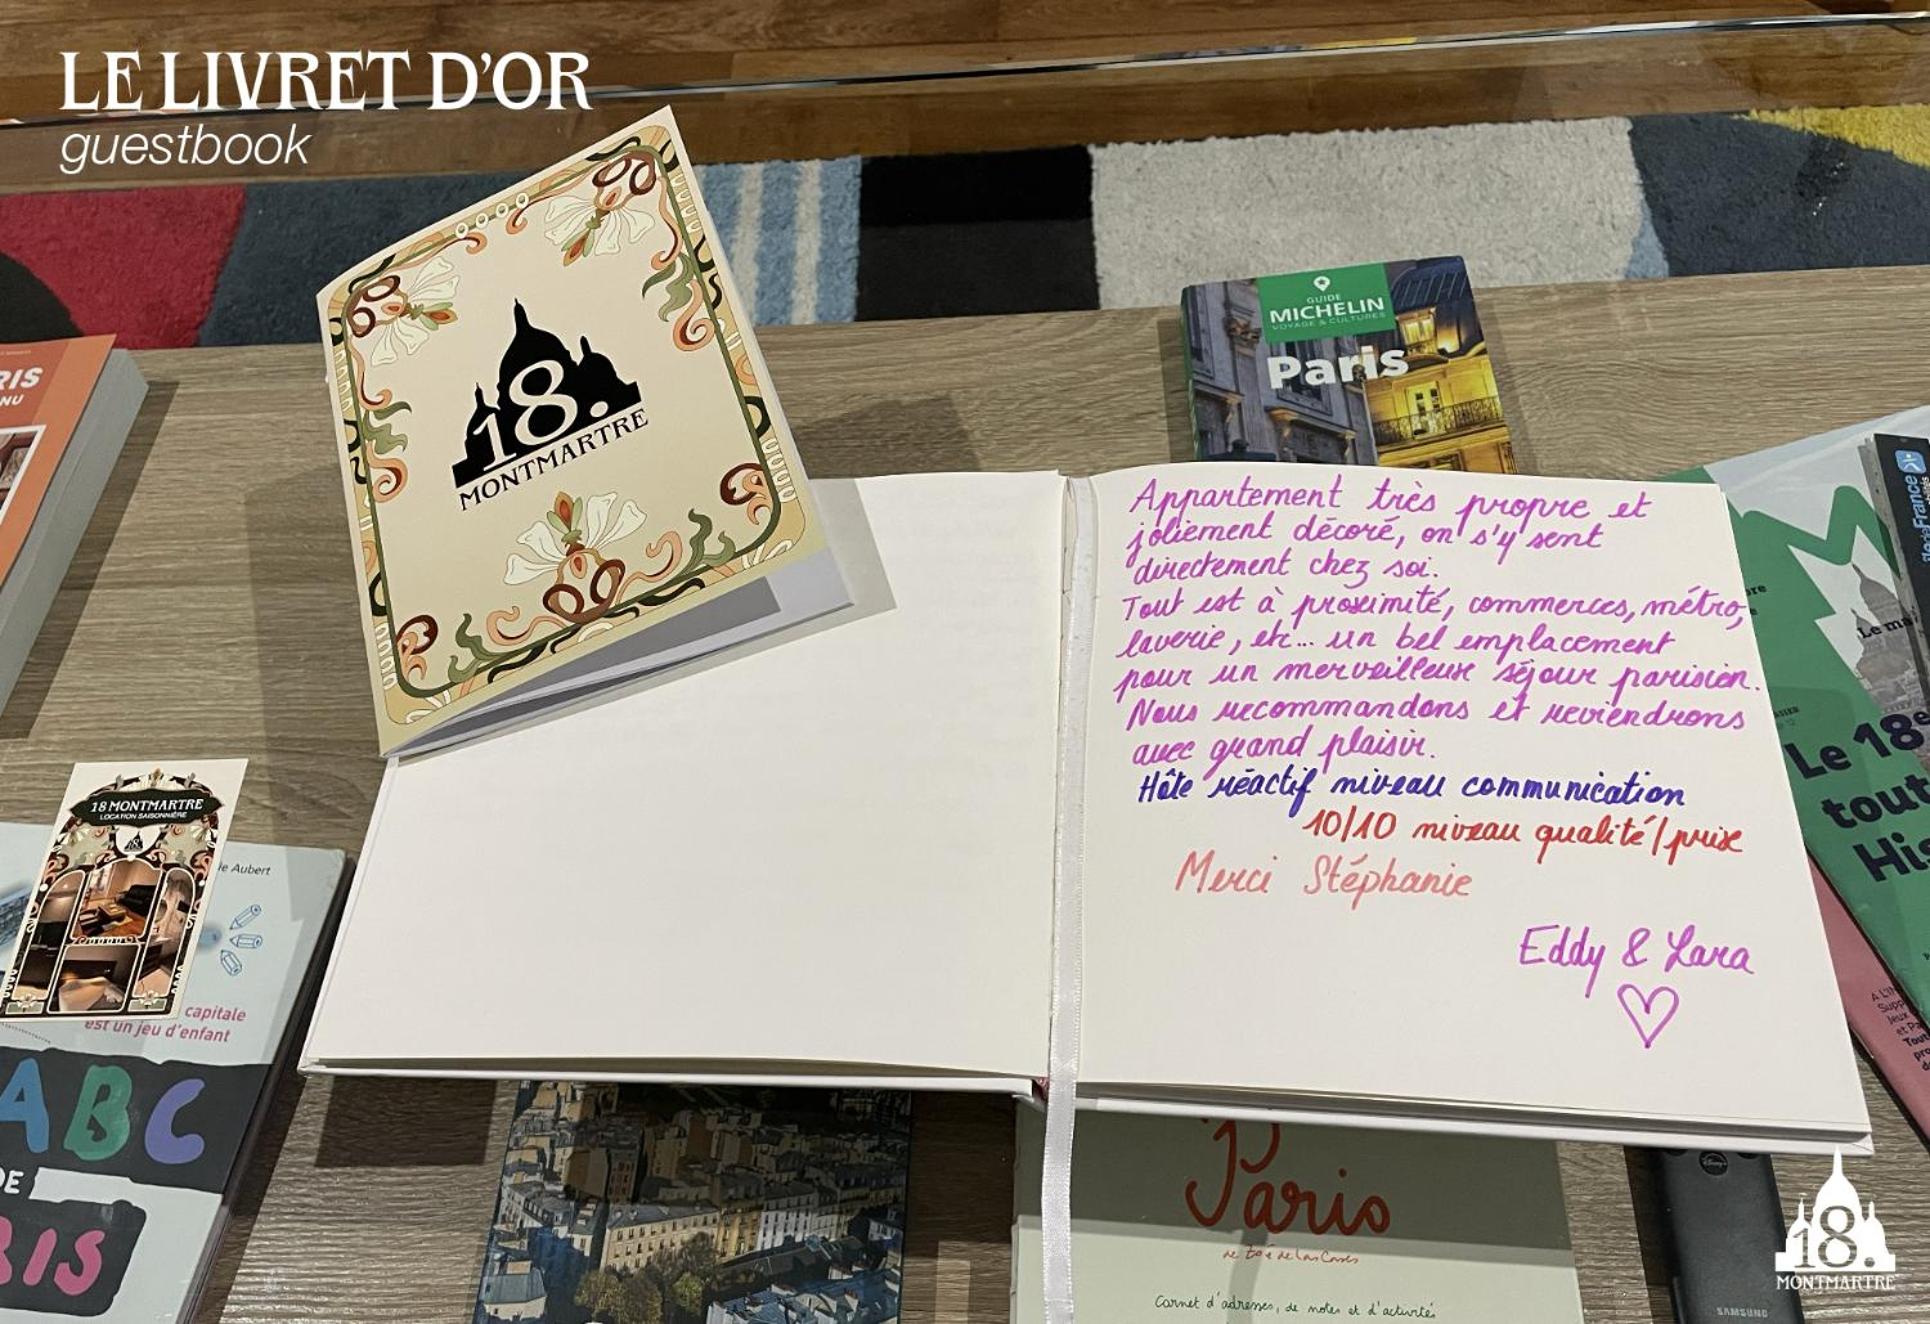 LE LIVRET D'OR
guestbook
18.
MONTMARTRE
GUIDE
MICHELIN
VOYAGE & CULTURES
Paris
RIS
NU
Appartement très propre et
joliement décoré, on s'y sent
directement chez soi.
Tout est à proximité, commerces, métro,
laverie, etc... un bel emplacement
pour un merveilleux séjour parisien.
Nous recommandons et reviendrons
avec grand plaisir.
Hôte réactif niveau communication
10/10 niveau qualité/prix
Merci Stéphanie
Eddy & Lara
18 MONTMARTRE
LOCATION SAISONNIÈRE
18.
ie Aubert
capitale
est un jeu d'enfant
ABC
DE
RIS
Paris
Carnet d'adresses, de notes et d'activités
îledeFrance
Le ma
Le 18e
tout
His
A L'IN
Supp
Jeux
et Pa
Tout
pro
SAMSUNG
18.
MONTMARTRE